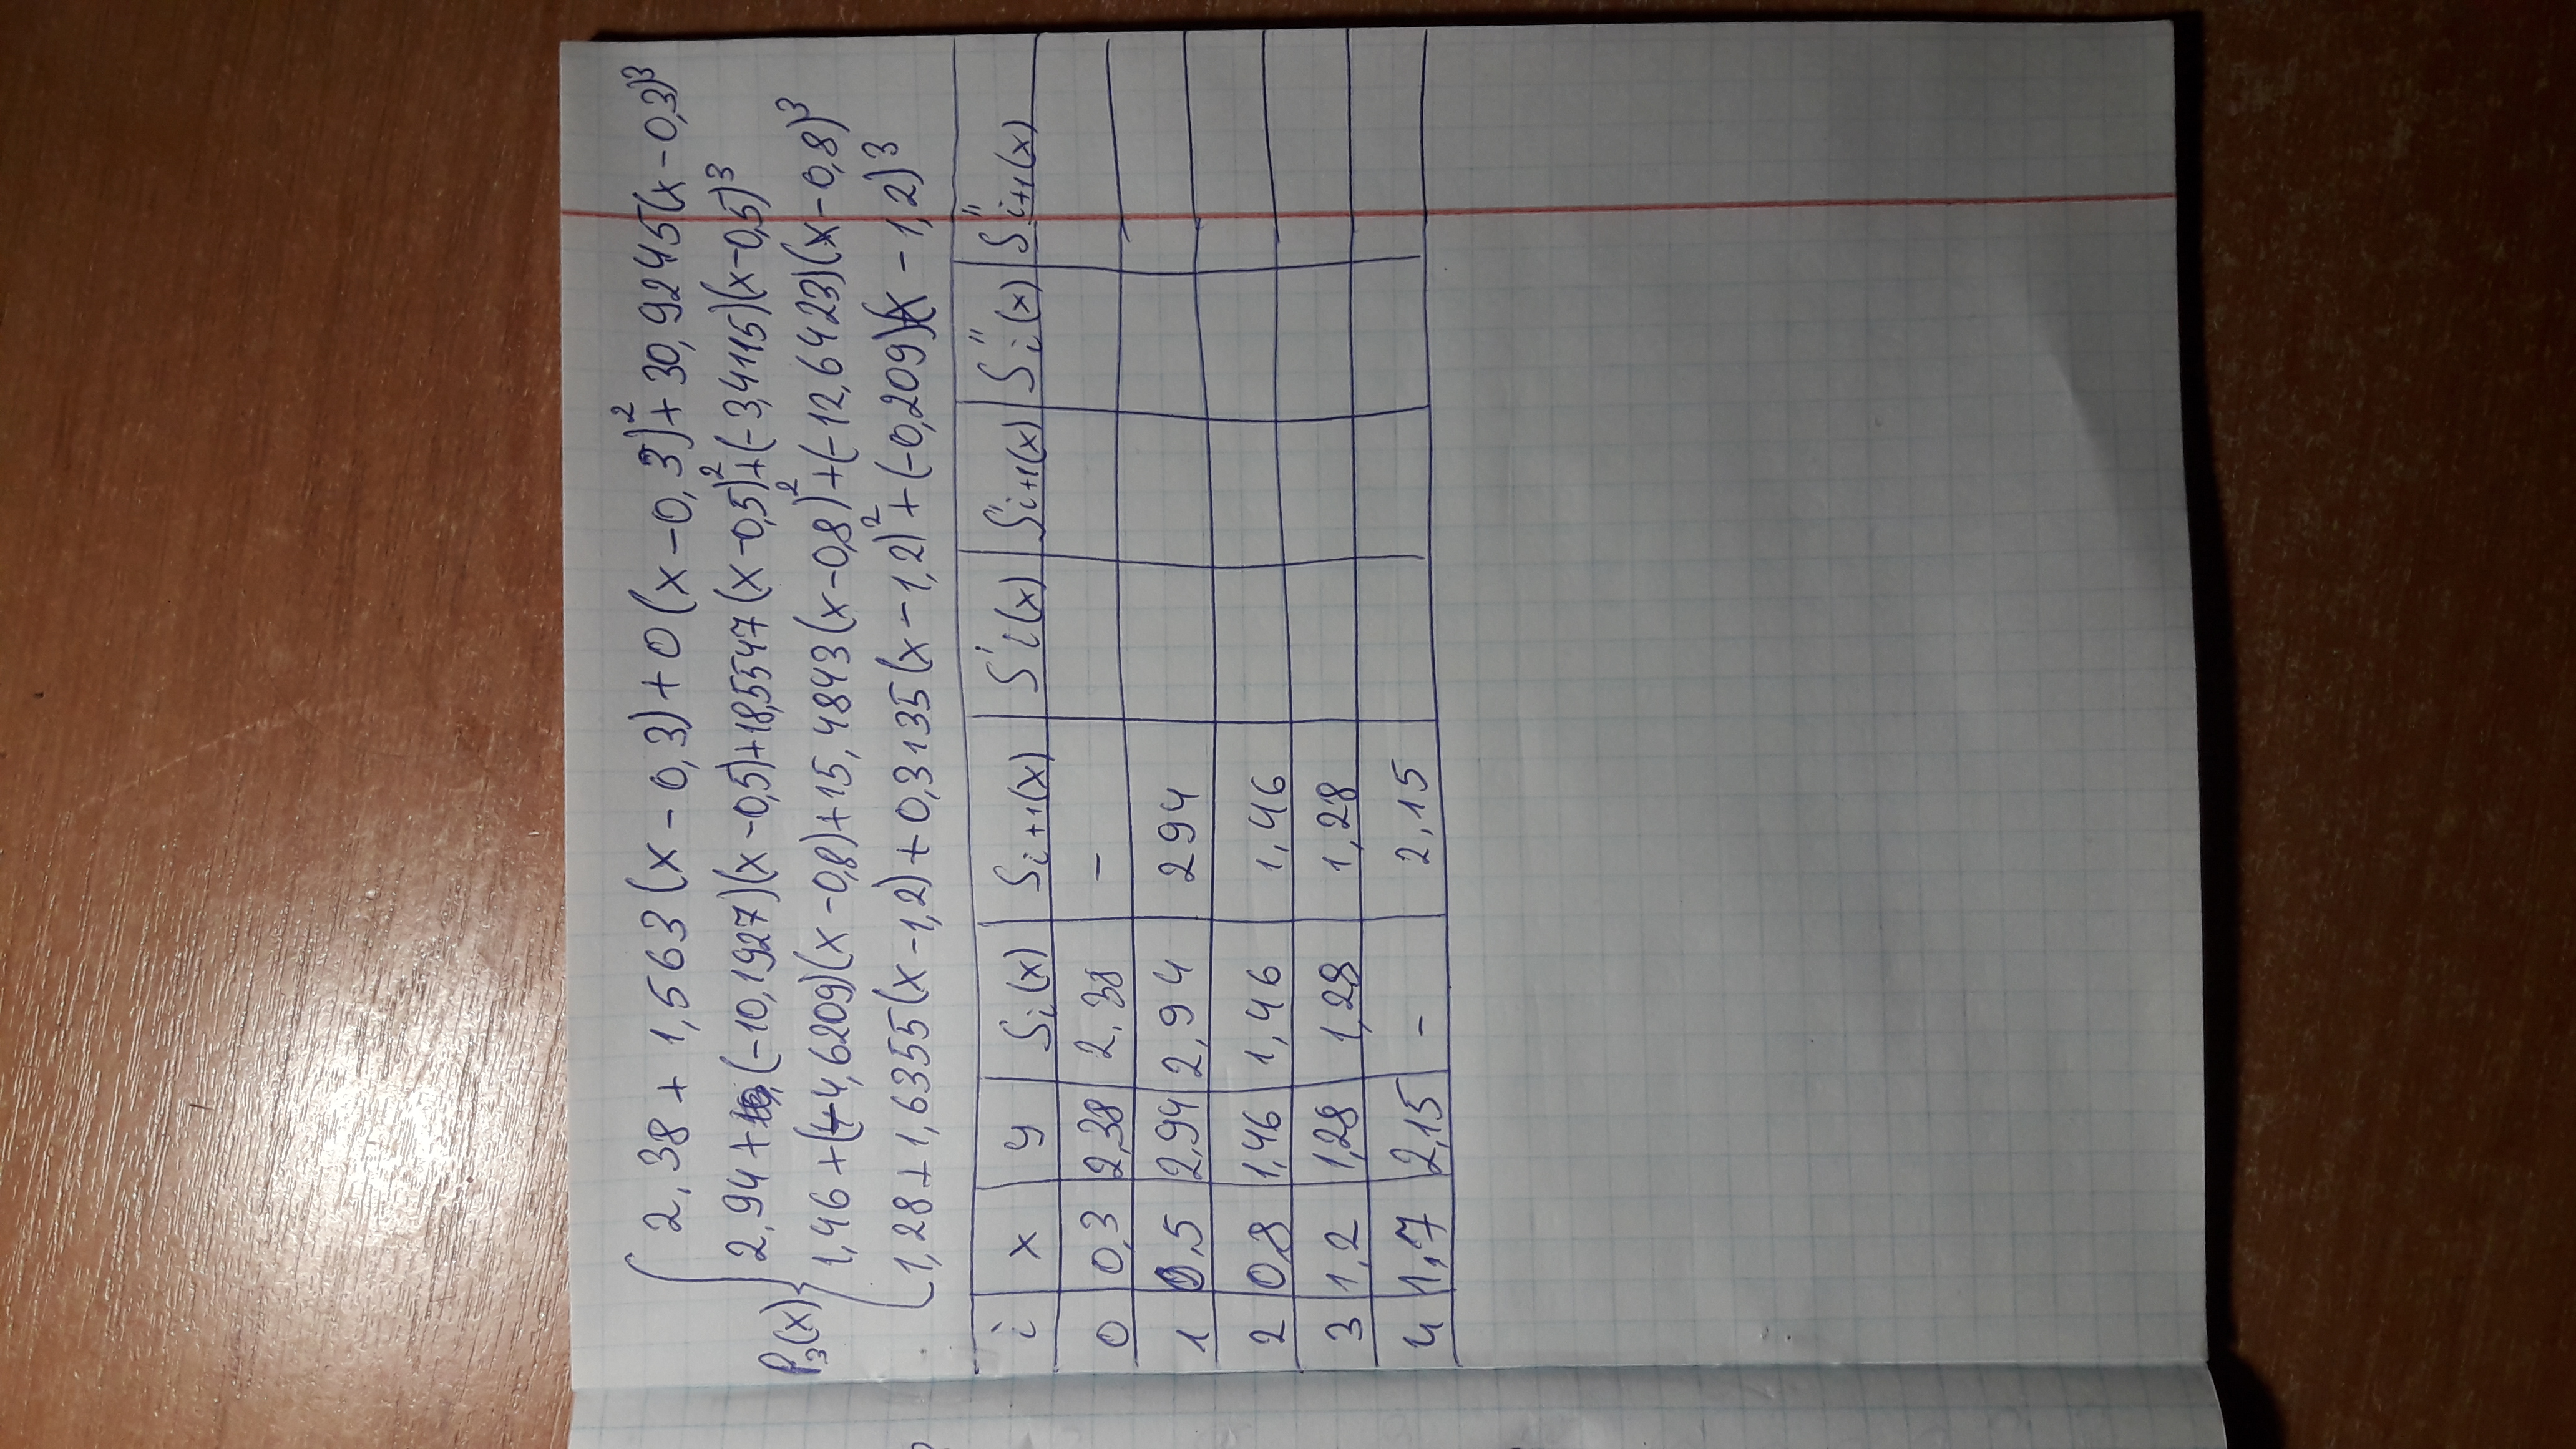 P₃(x) { 2,38 + 1,563(x – 0,3) + 0(x – 0,3)² + 30,9245(x – 0,3)³
2,94 + (-10,1927)(x – 0,5) + 18,5547(x – 0,5)² + (-3,4115)(x – 0,5)³
1,46 + (-4,6209)(x – 0,8) + 15,4843(x – 0,8)² + (-12,6423)(x – 0,8)³
1,28 + 1,6355(x – 1,2) + 0,3135(x – 1,2)² + (-0,209)(x – 1,2)³
i x y Sᵢ(x) Sᵢ₊₁(x) S'ᵢ(x) S'ᵢ₊₁(x) S''ᵢ(x) S''ᵢ₊₁(x)
0 0,3 2,38 2,38 –
1 0,5 2,94 2,94 294
2 0,8 1,46 1,46 1,46
3 1,2 1,28 1,28 1,28
4 1,7 2,15 – 2,15